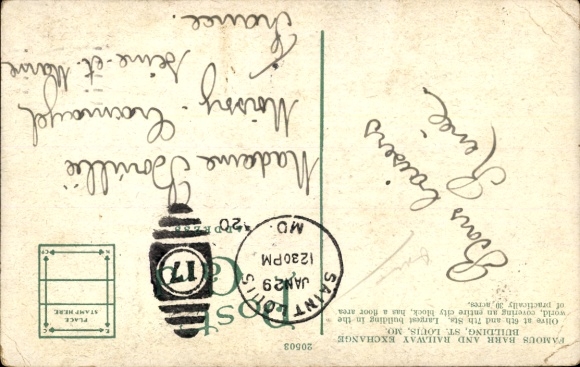 20503
FAMOUS BARR AND RAILWAY EXCHANGE
BUILDING, ST. LOUIS, MO.
Olive at 6th and 7th Sts. Largest building in the
world, covering an entire city block, has a floor area
of practically 30 acres.
Bons baisers
Renée.
Post
Card
ADDRESS
PLACE
STAMP HERE
SAINT LOUIS
JAN 29
12 30 PM
MO
20
17
Madame
Moissy-Cramayel
Seine-et-Marne
France.